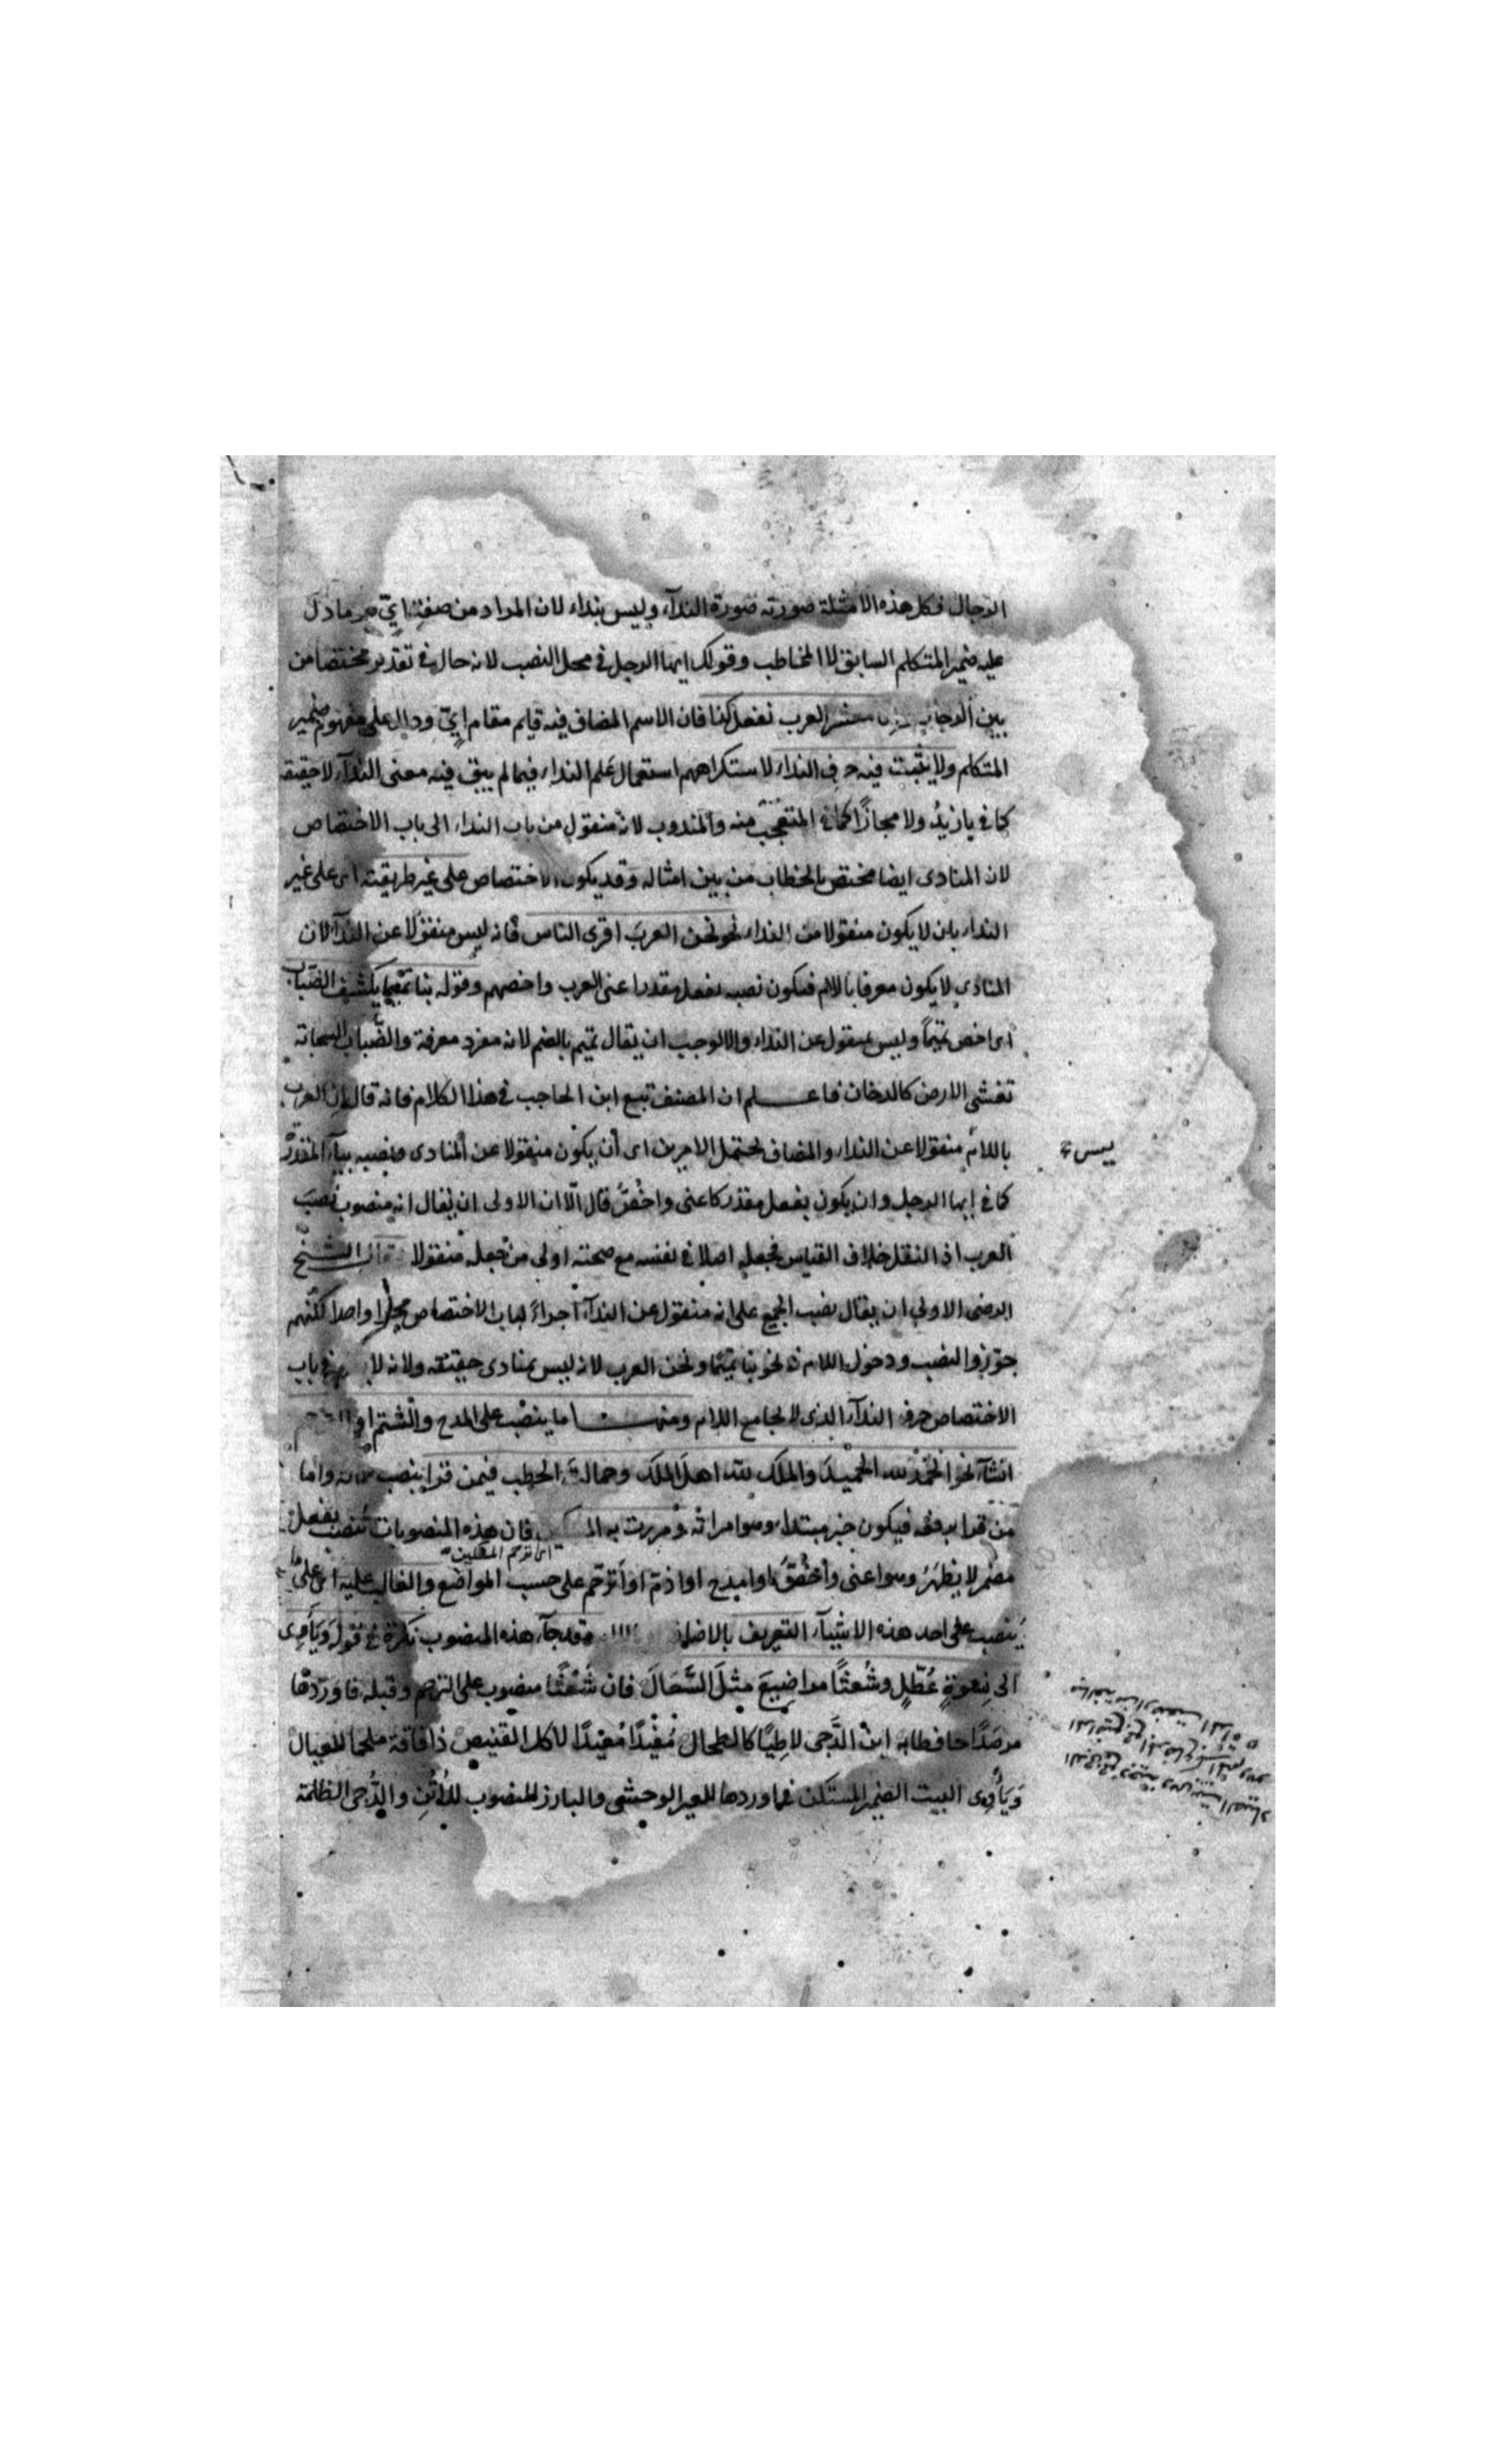 الرجال فكل هذه الامثلة صورته صورة النداء وليس بنداء لان المراد من صفة ايّ هو ما دل
عليه ضمير المتكلم السابق لا المخاطب وقولك ايها الرجل في محل النصب لانه حال في تقدير مختصا من
بين الرجال معشر العرب نفعل كذا فان الاسم المضاف فيه قايم مقام ايّ ودال على مفهوم ضمير
المتكلم ولا يثبت فيه حرف النداء لاستكراههم استعمال علم النداء فيما لم يبق فيه معنى النداء لا حقيقة
كما في يا زيدُ ولا مجازًا كما في المتفجّع منه والمندوب لانه منقول من باب النداء الى باب الاختصاص
لان المنادى ايضا مختص بالخطاب من بين امثاله وقد يكون الاختصاص على غير طريقته اى على غير
النداء بان لا يكون منقولا من النداء نحو نحن العربَ اقرى الناس فانه ليس منقولا عن النداء لان
المنادى لا يكون معرفا باللام فيكون نصبه بفعل مقدر اعنى العرب واخصهم وقوله بنا تميما يكشف الضباب
اى اخص تميمًا وليس بمنقول عن النداء والا لوجب ان يقال تميم بالضم لانه مفرد معرفة والضباب السحابة
تغشى الارض كالدخان فاعلم ان المصنف تبع ابن الحاجب في هذا الكلام فانه قال ان العرب
باللام منقولا عن النداء والمضاف يحتمل الامرين اى أن يكون منقولا عن المنادى ونصبه بياء المقدر
ليس
كما في ايها الرجل وان يكون بفعل مقدر كاعنى واخُصُّ قال الّا ان الاولى ان يقال انه منصوب نصبَ
العرب اذ النقل خلاف القياس فجعله اصلا في نفسه مع صحته اولى من جعله منقولا قال الشيخ
الرضى الاولى ان يقال نصب الجميع على انه منقول عن النداء اجراءً لباب الاختصاص مجرا واحدا لكنهم
جوّزوا النصب ودخول اللام في نحو بنا تميمًا ونحن العرب لانه ليس بمنادى حقيقة ولانه لا يظهر في باب
الاختصاص حرف النداء الذى لا يجامع اللام ومنها ما ينصب على المدح والشتم او الترحم
انشاء نحو الحمدُ لله الحميدَ والملك لله اهلَ الملك وحمالةَ الحطب فيمن قرا بنصب حمالة واما
من قرا برفعه فيكون خبر مبتدا وهو امراته ومررت به المسكين فان هذه المنصوبات تُنصب بفعل
اى ترحم المسكين
مضمر لا يظهرُ وهو اعنى وأخُصُّ او امدح او اذمّ او أترحّم على حسب المواضع والغالب عليه اى على ما
يُنصب على احد هذه الاشياء التعريف بالاضافة وقد جاء هذه المنصوب نكرة في قول ويَأوى
الى نِسوةٍ عُطّلٍ وشُعثًا مراضيعَ مثلَ السَّعَالى فان شَعْثًا منصوب على الترحم وقبله فاوردها
مرصدًا حافظا به ابن الدُّجى لاطِيًا كالطحال مُفيْدًا مُعيْدًا لاكل القنيص ذا فاقة ملحما للعيال
وَيَأوى البيت الضمير المستكن في اوردها للعير الوحشى والبارز المنصوب للأُتُنِ والدُّجى الظلمة